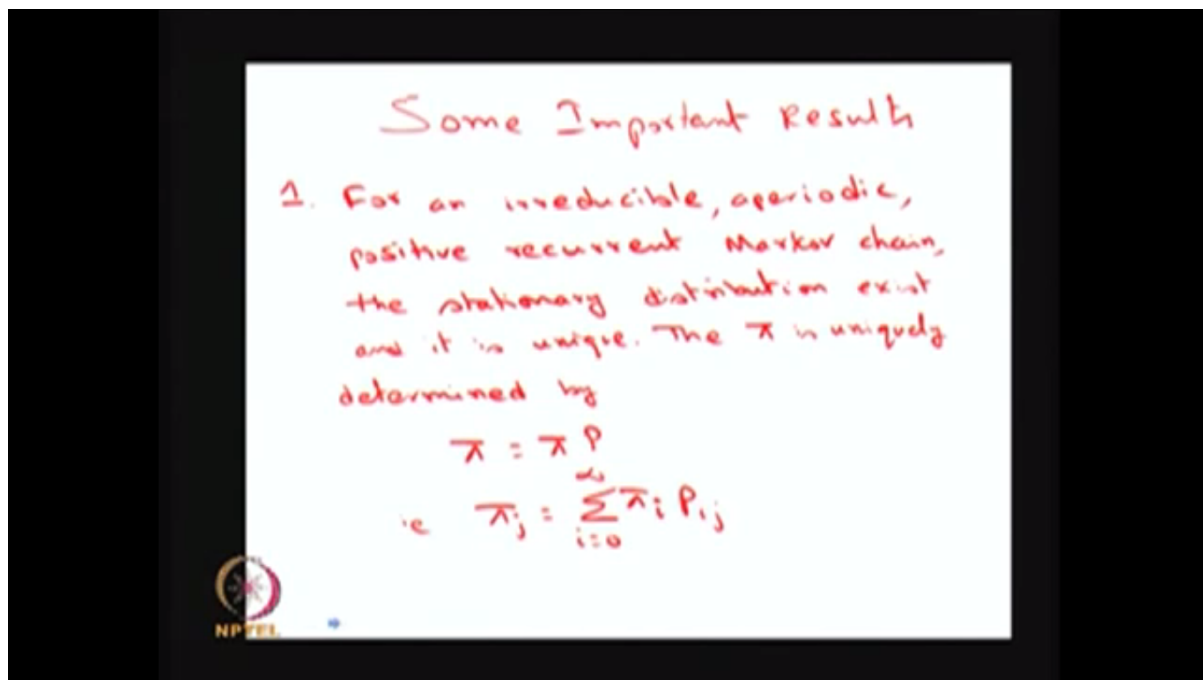 Some Important Results
1. For an irreducible, aperiodic,
positive recurrent Markov chain,
the stationary distribution exist
and it is unique. The π is uniquely
determined by
π = π P
ie π_j = ∑_{i=0}^{∞} π_i P_{ij}
NPTEL